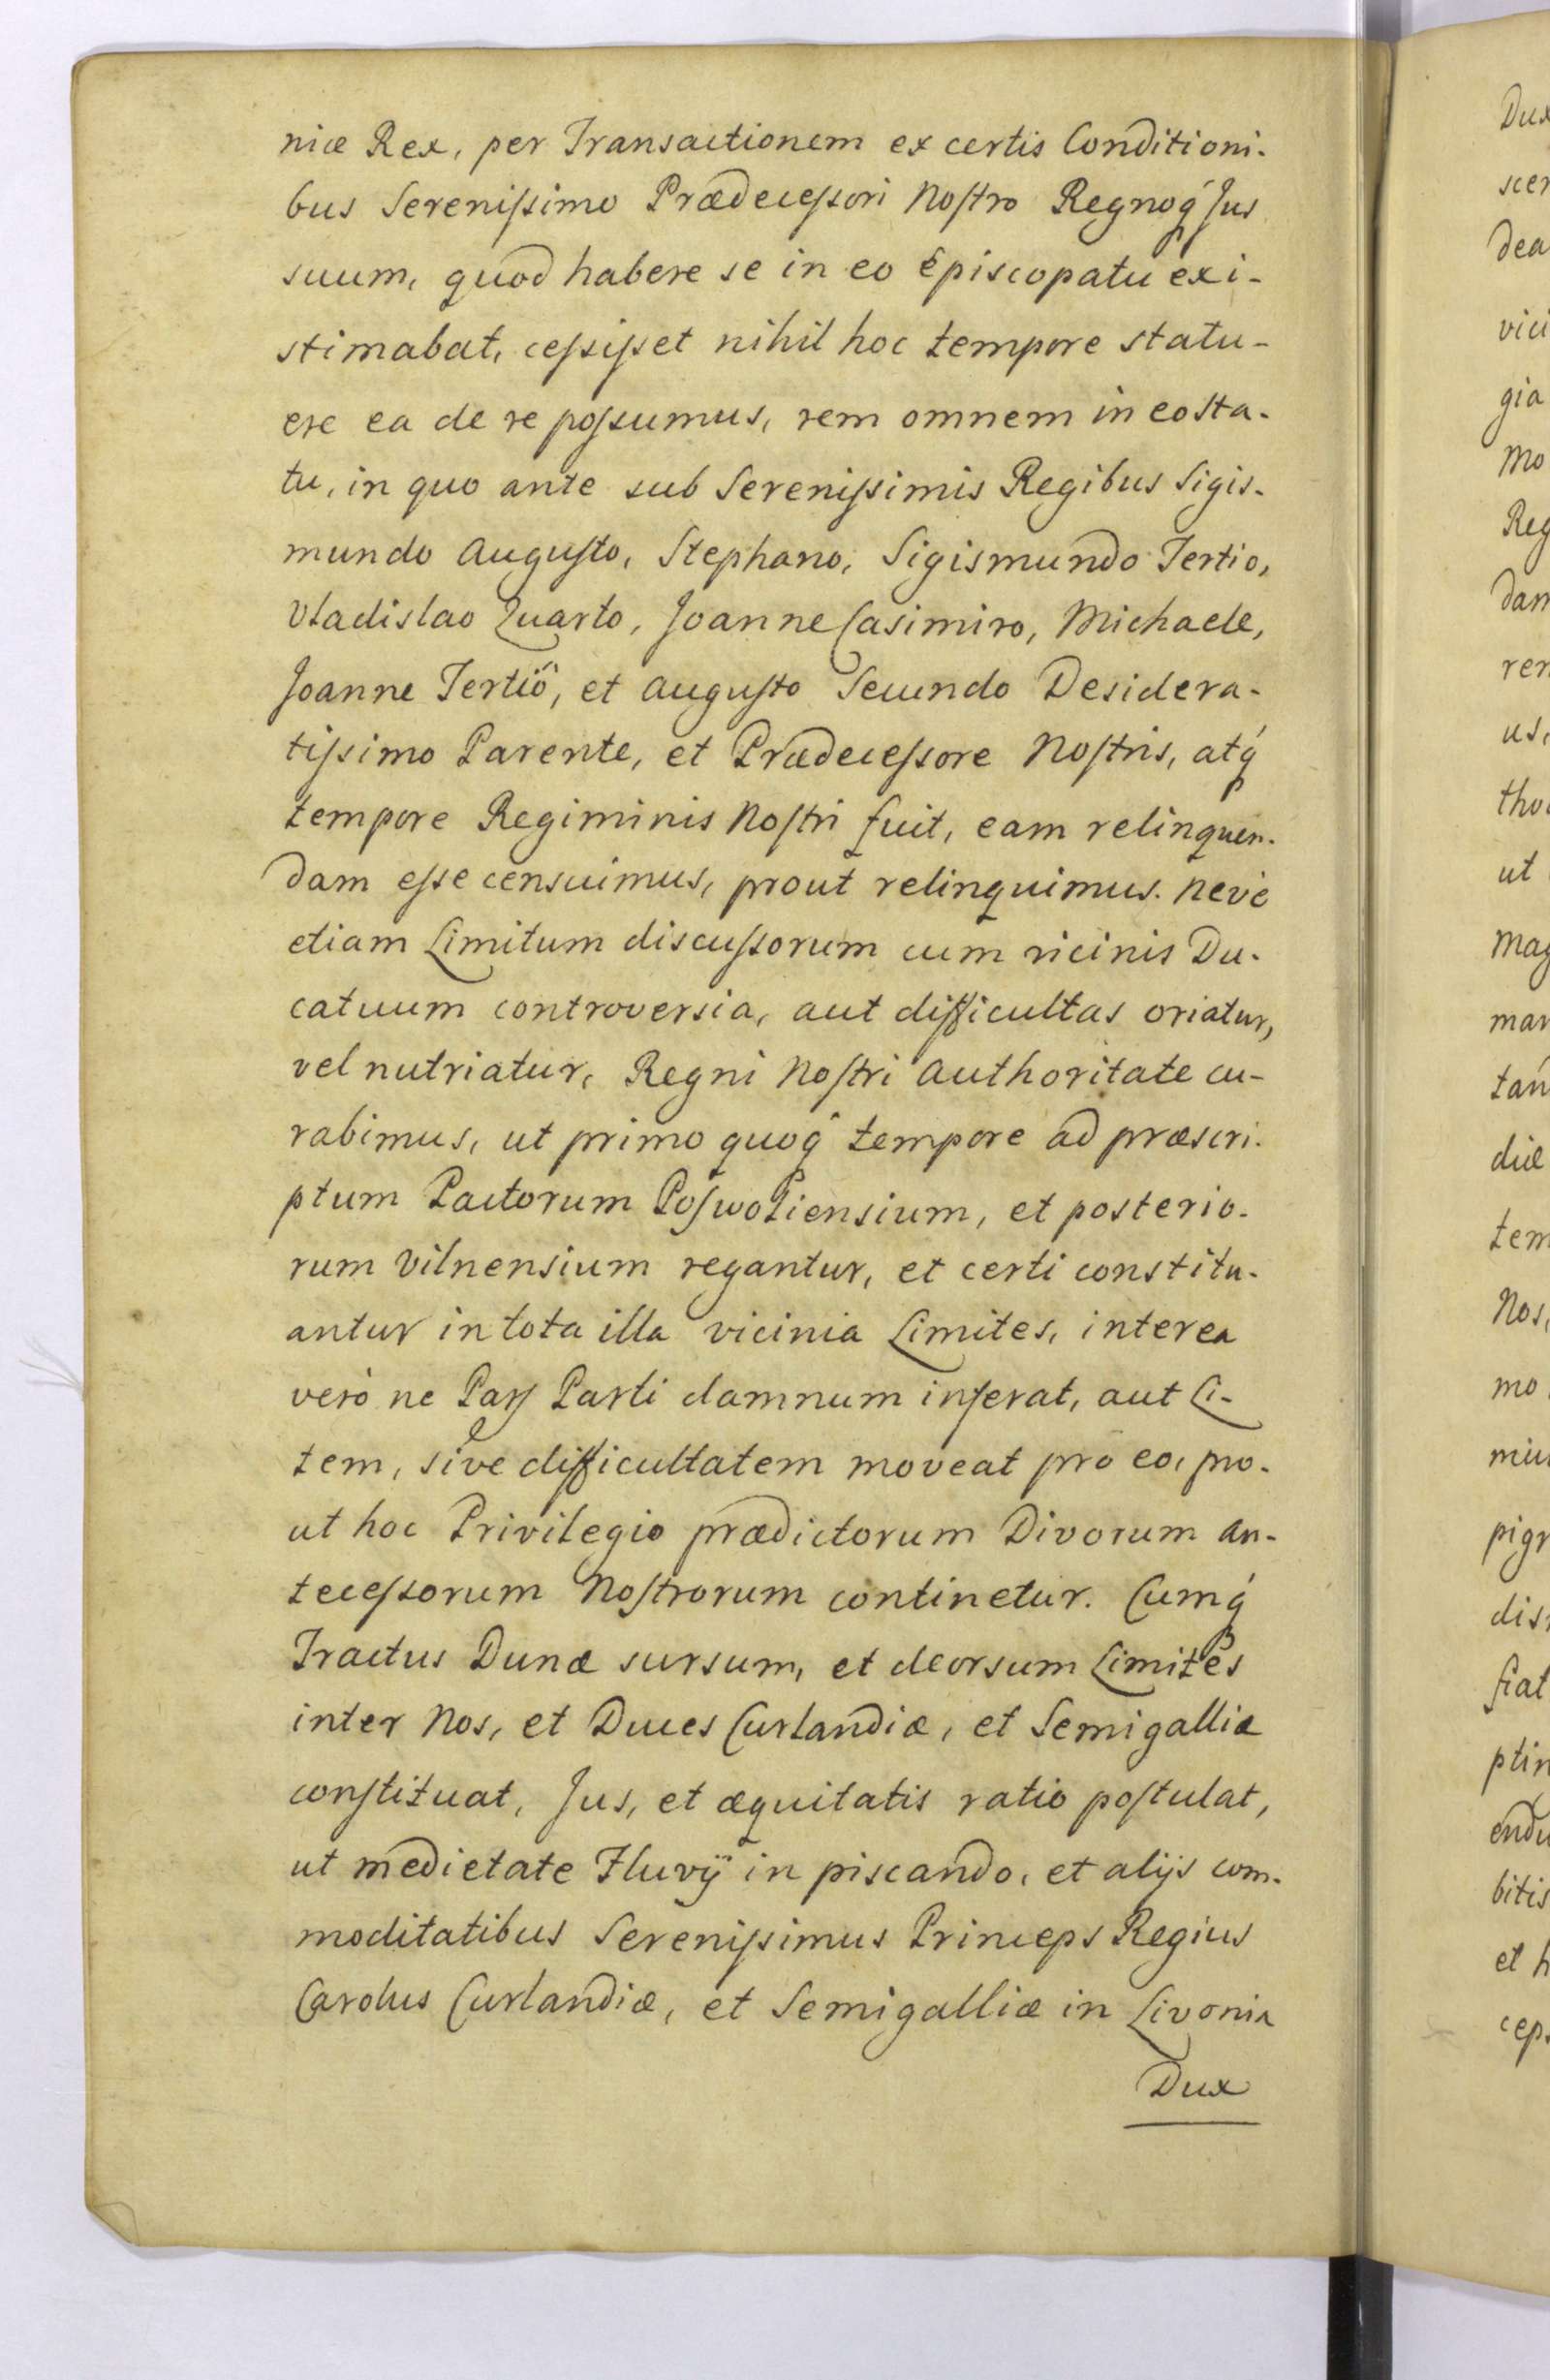 niæ Rex, per Transactionem ex certis Conditioni-
bus Serenissimo Prædecessori Nostro Regnoq́ Jus
suum, quod habere se in eo Episcopatu exi-
stimabat, cessisset nihil hoc tempore statu-
ere ea de re possumus, rem omnem in eo sta-
tu, in quo ante sub Serenissimis Regibus Sigis-
mundo Augusto, Stephano, Sigismundo Tertio,
Vladislao Quarto, Joanne Casimiro, Michaele,
Joanne Tertiô, et Augusto Secundo Desidera-
tissimo Parente, et Prædecessore Nostris, atq́
tempore Regiminis Nostri fuit, eam relinquen-
dam esse censuimus, prout relinquimus. Nevè
etiam Limitum discussorum cum vicinis Du-
catuum controversia, aut difficultas oriatur,
vel nutriatur, Regni Nostri Authoritate cu-
rabimus, ut primo quoq́ tempore ad præscri-
ptum Pactorum Poswoliensium, et posterio-
rum Vilnensium regantur, et certi constitu-
antur in tota illa vicinia Limites, interea
verò ne Pars Parti damnum inferat, aut Li-
tem, sive difficultatem moveat pro eo, pro-
ut hoc Privilegio prædictorum Divorum An-
tecessorum Nostrorum continetur. Cumq́
Tractus Dunæ sursum, et deorsum Limites
inter Nos, et Duces Curlandiæ, et Semigalliæ
constituat, Jus, et æquitatis ratio postulat,
ut medietate Fluvÿ in piscando, et alijs com-
moditatibus Serenissimus Princeps Regius
Carolus Curlandiæ, et Semigalliæ in Livonia
Dux
Dux
scer
dea
vici
gia
Mo
Reg
dam
rer
us,
tho
ut
Mag
man
tan
diæ
tem
Nos,
mo
miu
pigr
dis
fiat
ptin
endu
bitis
et h
cep